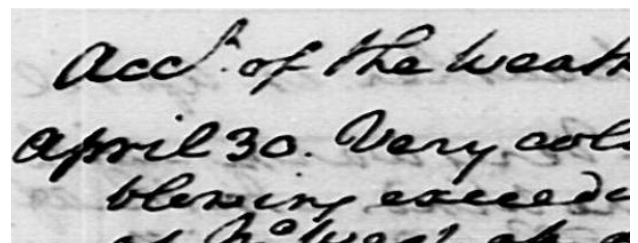 Acct. of the weath
April 30. Very col
blowing exceedi